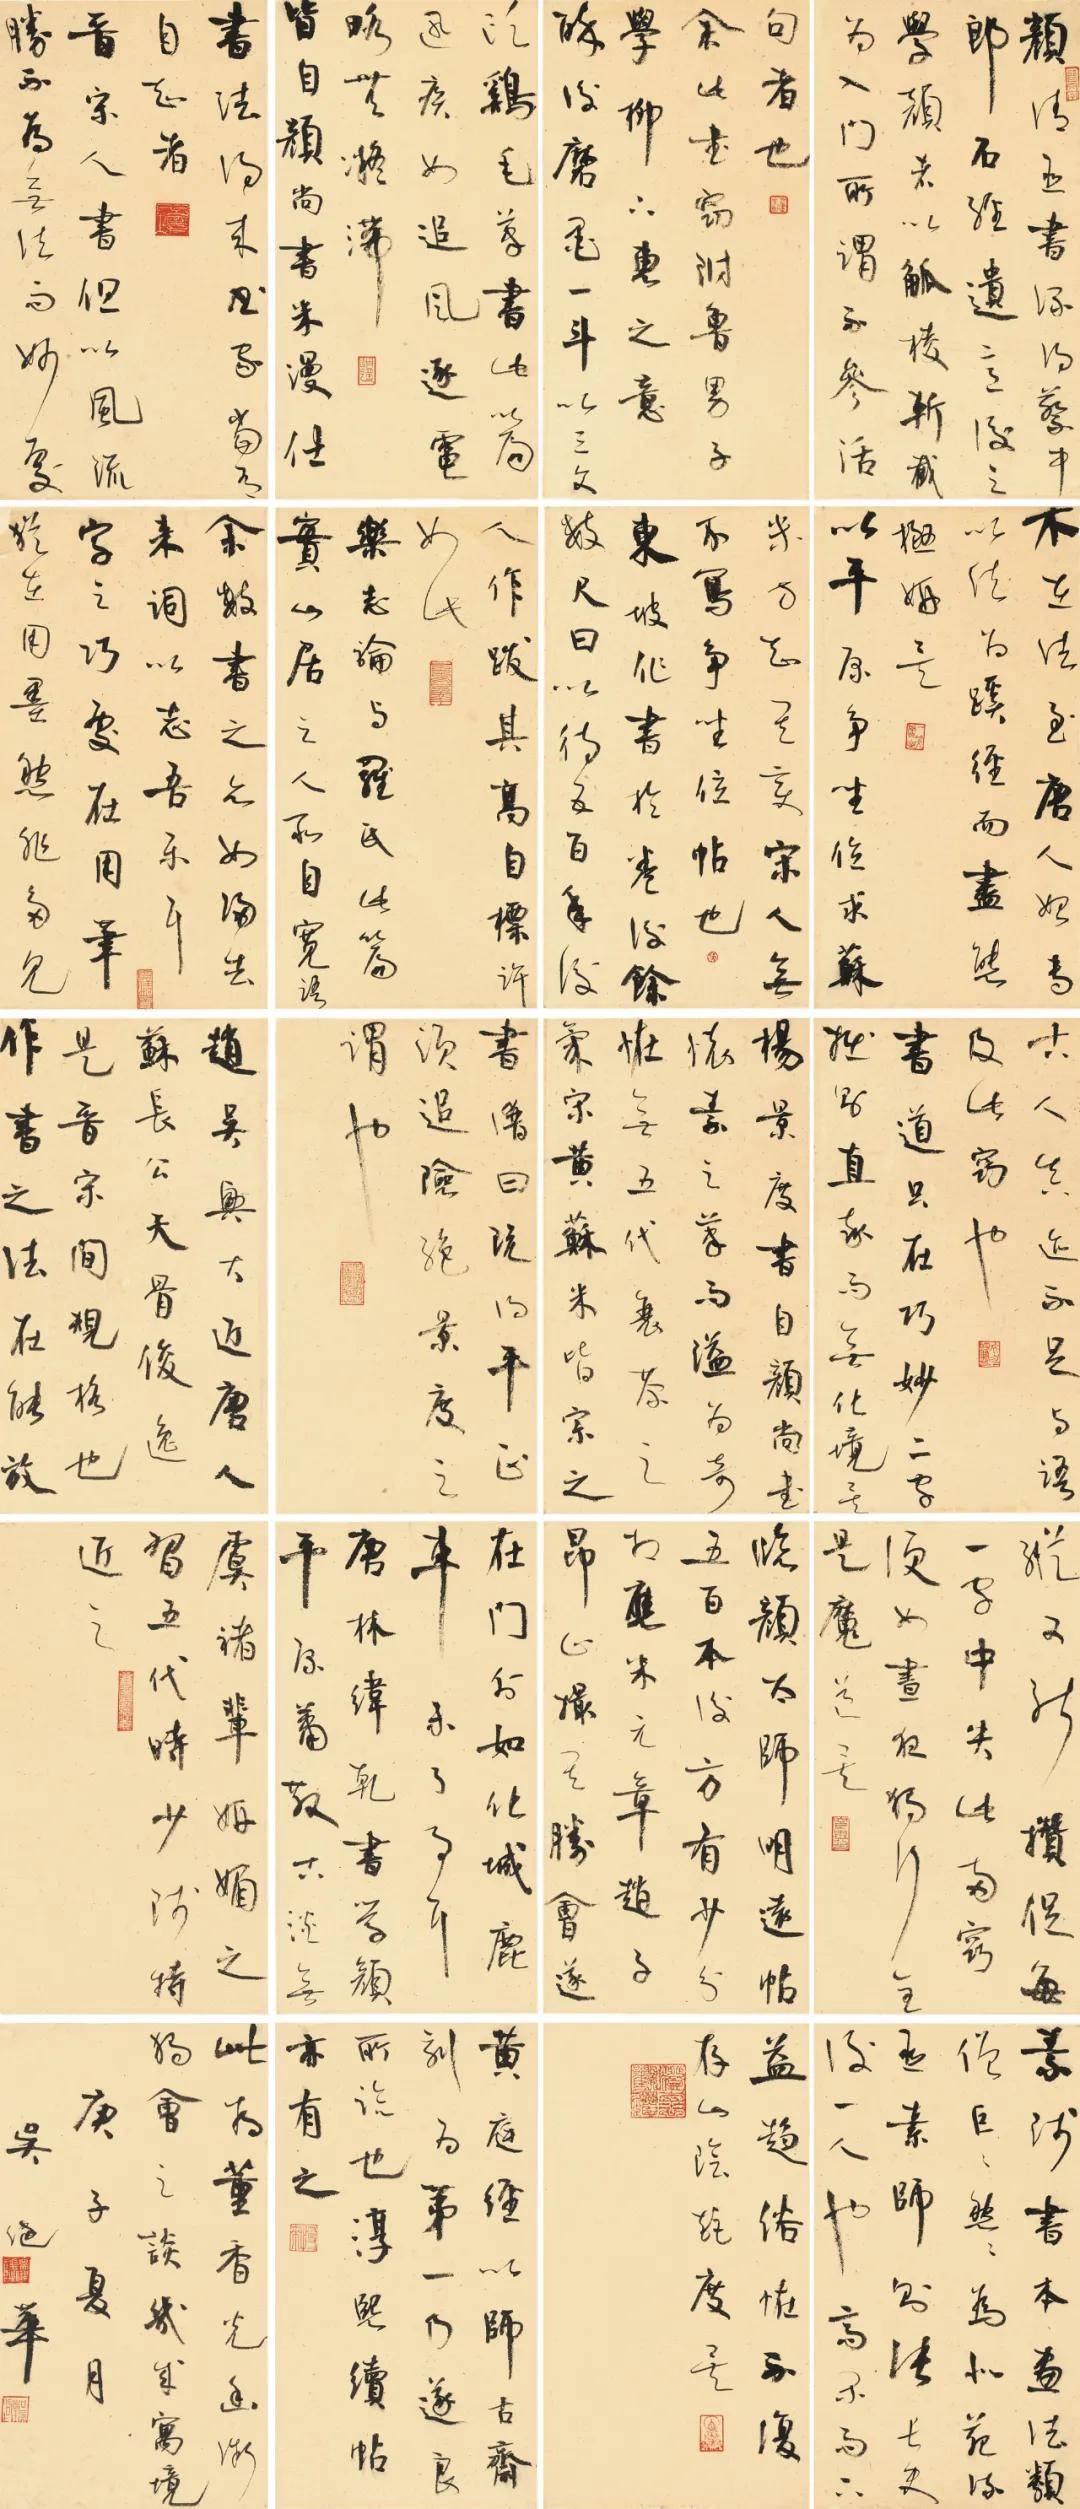 顏清臣書深得蔡中
郎石經遺意後之
學顏者以觚棱斬截
為入門所謂不參活
句者也
余此書竊附魯男子
學柳下惠之意
醉後磨墨一斗以三文
雞毛筆書此篇
迅疾如追風逐電
略無凝滯
皆自顏尚書米漫仕
書法得來書家當有
自知者
晉宋人書但以風流
勝不為無法而妙處
不在法至唐人始專
以法為蹊徑而盡態
極妍矣
以平原爭坐位求蘇
米方知其變宋人無
不寫爭坐位帖也
東坡作書於卷後餘
數尺曰以待五百年後
人作跋其高自標許
如此
樂志論與羅氏此篇
實山居之人所自寬語
余數書之亦如歸去
來詞以志吾樂耳
字之巧處在用筆
尤在用墨然非多見
古人真迹不足與語
及此竅也
書道只在巧妙二字
拙則直率而無化境矣
楊景度書自顏尚書
懷素之筆而溢為奇
怪無五代衰苶之
氣宋黃蘇米皆宗之
書譜曰既得平正
須追險絕景度之
謂也
趙吳興大近唐人
蘇長公天骨俊逸
是晉宋間規格也
作書之法在能放
縱又能攢促每
一字中失此兩竅
便如晝夜獨行全
是魔道矣
臨顏太師明遠帖
五百本後方有少分
相應米元章趙子
昂止撮其勝會遂
在門外如化城鹿
車未了事耳
唐林緯乾書學顏
平原蕭散古淡無
虞褚輩妍媚之
習五代時少師特
近之
素師書本畫法類
僧巨巨然然為北苑流
亞素師則張長史
後一人也高閑而下
益趨俗怪不復
存山陰矩度矣
黃庭經以師古齋
刻為第一乃遂良
所臨也淳熙續帖
亦有之
此為董香光
獨會之談幾成寓境
庚子夏月
吳 華